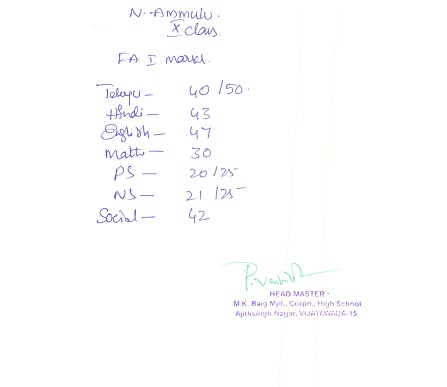 N. Ammulu.
X class.
FA I marks.
Telugu - 40/50.
Hindi - 43
English - 47
Maths - 30
PS - 20/25
NS - 21/25
Social - 42
HEAD MASTER
M.K. Baig Mpl., Corpn., High School
Ajithsingh Nagar, VIJAYAWADA-15.